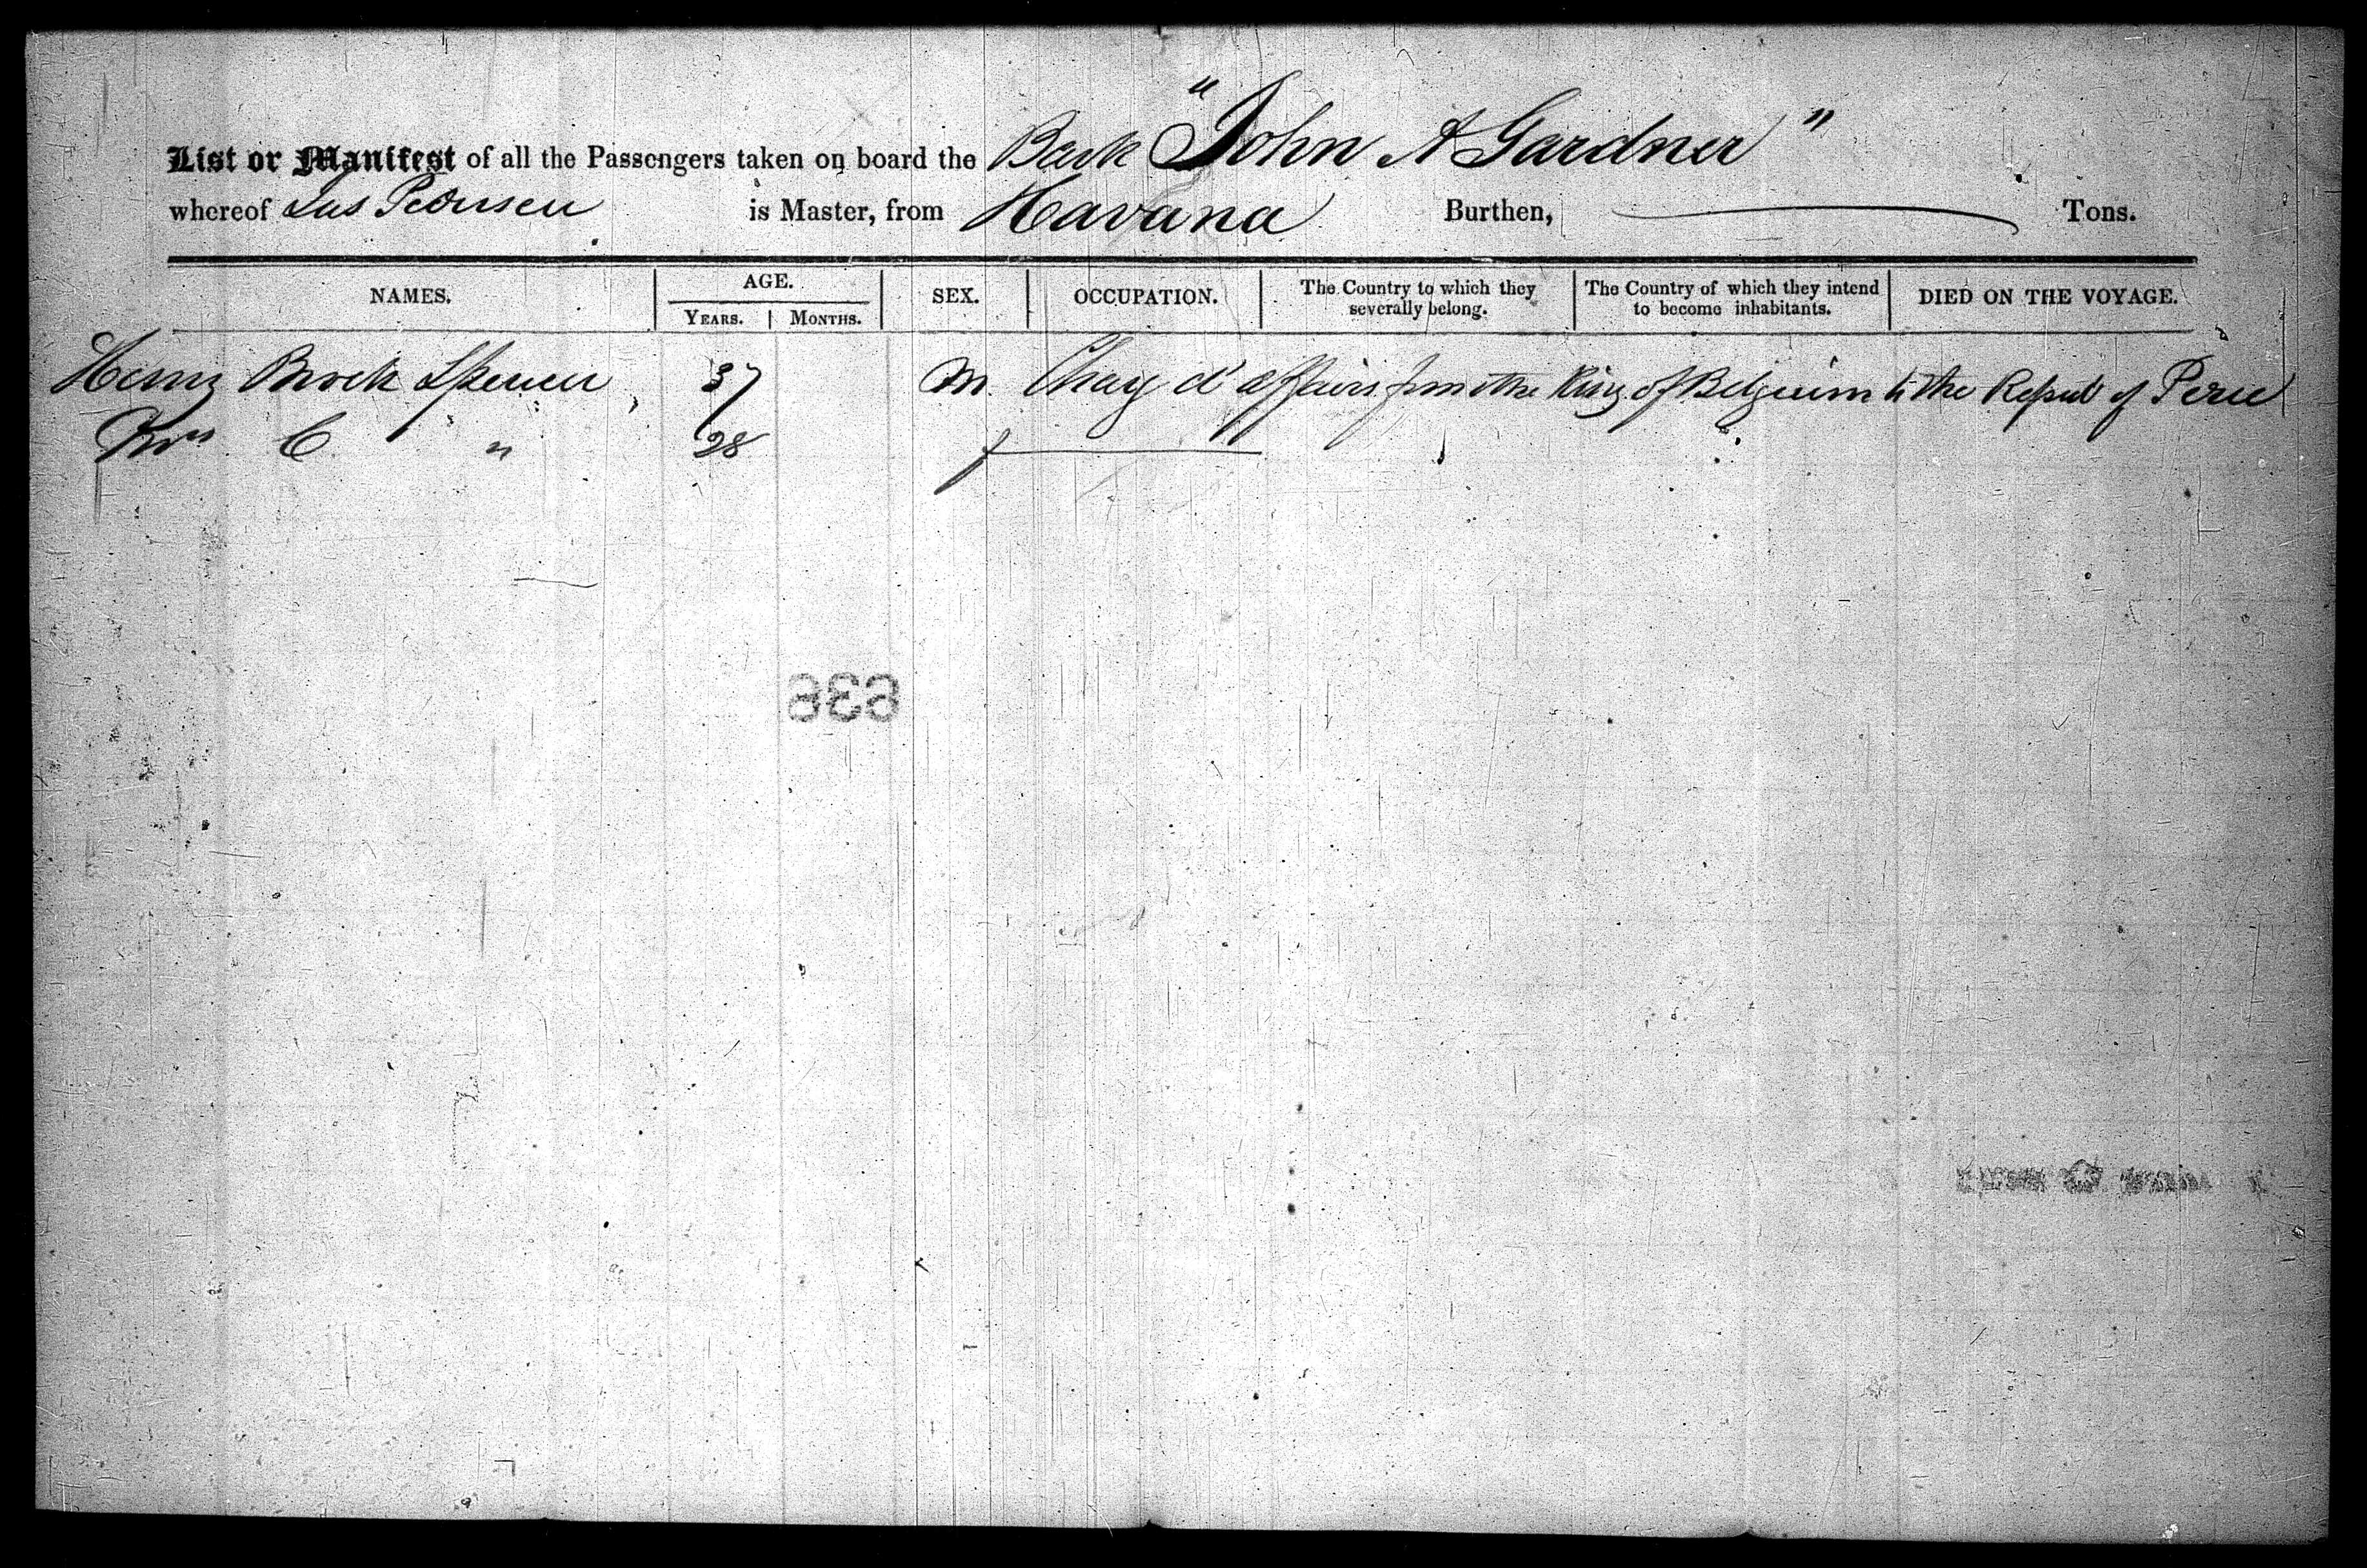 List or Manifest of all the Passengers taken on board the Bark "John A Gardner"
whereof Pedersen is Master, from Havana Burthen, Tons.
NAMES. AGE. SEX. OCCUPATION. The Country to which they severally belong. The Country of which they intend to become inhabitants. DIED ON THE VOYAGE.
YEARS. MONTHS.
Henry Brock Spencer 37 M. Charg d'affairs from the King of Belguim to the Repub of Peru
Mrs C. " 28 f
636